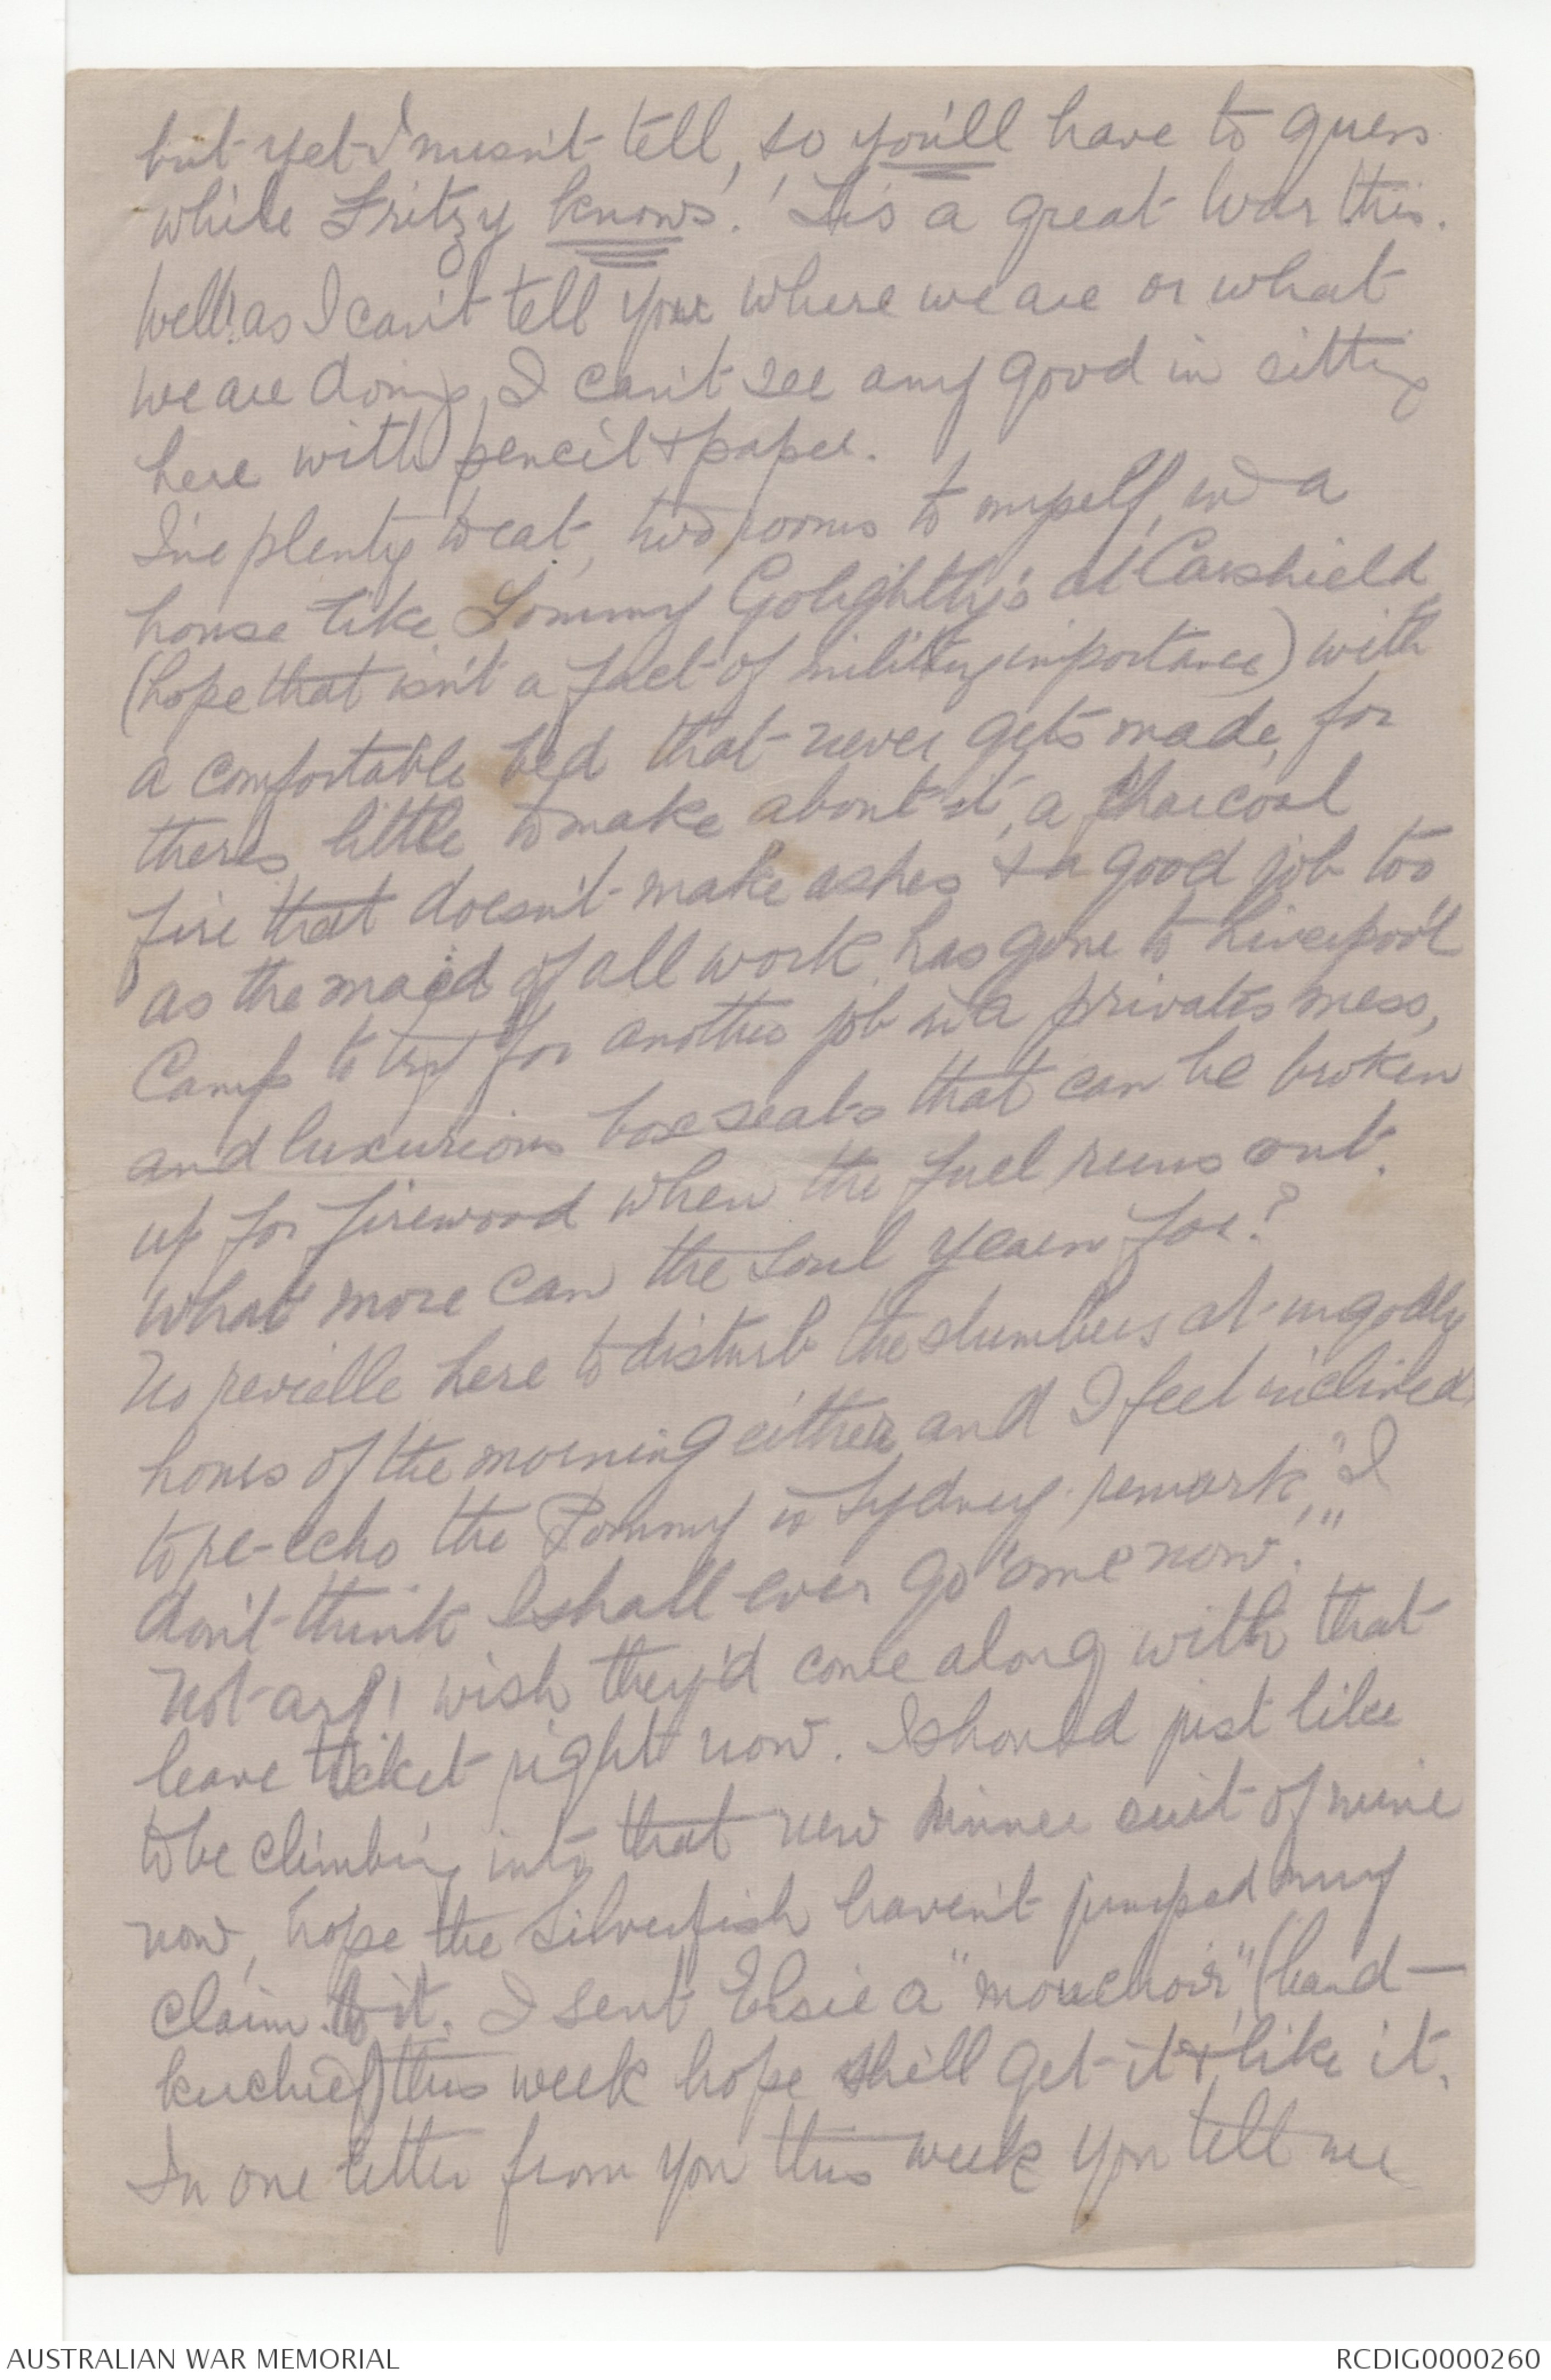 but yet I musn't tell, so you'll have to guess
while Fritzy knows! 'Tis a great War this.
Well! as I can't tell you where we are or what
we are doing, I can't see any good in sitting
here with pencil & paper.
I've plenty to eat, two rooms to myself, in a
house like Tommy Golightly's at Carshield
(hope that isn't a fact of military importance) with
a comfortable bed that never gets made, for
theres little to make about it, a charcoal
fire that doesn't make ashes & a good job too
as the maid of all work has gone to Liverpool
Camp to try for another job in a privates mess,
and luxurious box seats that can be broken
up for firewood when the fuel runs out.
What more can the soul yearn for?
No revielle here to disturb the slumbers at ungodly
hours of the morning either, and I feel inclined
to re-echo the Pommy in Sydney remark, "I
don't think I shall ever go 'ome now."
Not arf! wish they'd come along with that
leave ticket right now. I should just like
to be climbing into that new dinner suit of mine
now, hope the silverfish haven't jumped my
claim to it. I sent Elsie a "mouchoir" (hand-
kerchief) this week hope she'll get it & like it.
In one letter from you this week you tell me
AUSTRALIAN WAR MEMORIAL
RCDIG0000260